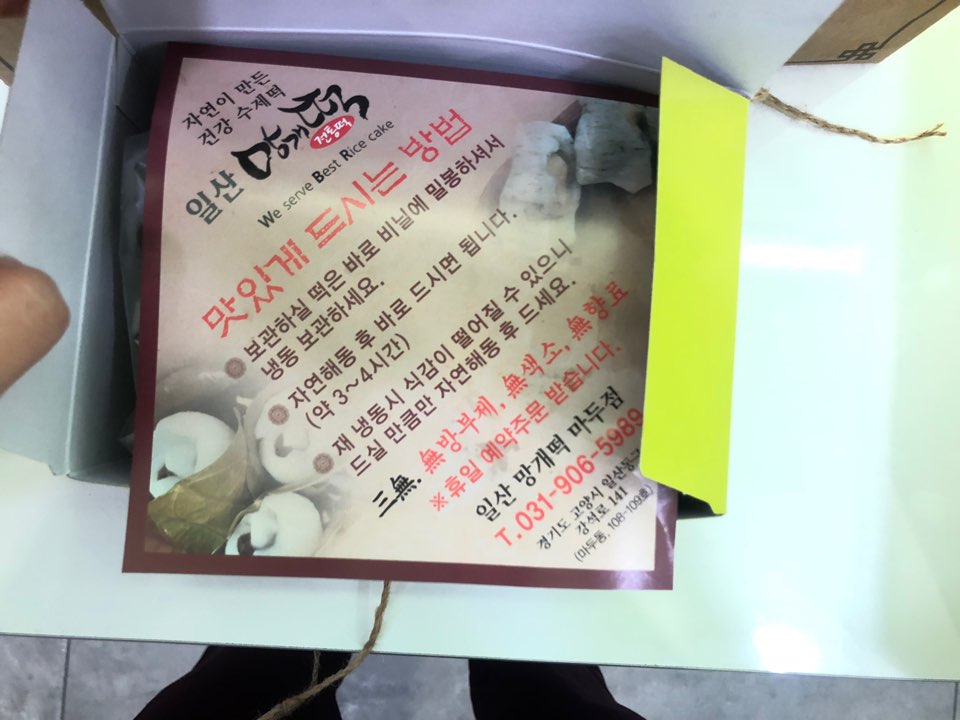 자연이 만든
건강 수제떡
일산 망개떡
전통떡
We serve Best Rice cake
맛있게 드시는 방법
보관하실 떡은 바로 비닐에 밀봉하셔서
냉동 보관하세요.
자연해동 후 바로 드시면 됩니다.
(약 3~4시간)
재 냉동시 식감이 떨어질 수 있으니
드실 만큼만 자연해동 후 드세요.
三無. 無방부제, 無색소, 無향료
※ 휴일 예약주문 받습니다.
일산 망개떡 마두점
T. 031-906-5989
경기도 고양시 일산동구
강석로 141
(마두동, 108-109호)